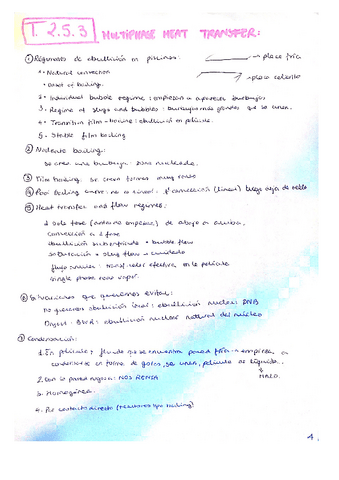 T. 2.5.3 MULTIPHASE HEAT TRANSFER:
① Regímenes de ebullición en piscinas: → placa fría
1- Natural convection → placa caliente
2- Onset of boiling.
2- Individual bubble regime: empiezan a aparecer burbujas
3- Regime of slugs and bubbles: burbujas más grandes que se unen.
4- Transition film-boiling: ebullición en película.
5- Stable film boiling
② Nucleate boiling:
se crea una burbuja: zona nucleada.
③ Film boiling: se crean formas muy
④ Pool boiling curve: no es lineal: 1º convección (lineal) luego deja de serlo
⑤ Heat transfer and flow regimes:
1 sola fase (antes de empezar) de abajo a arriba.
Convección a 1 fase
ebullición subenfriada + bubble flow
saturación + slug flow
flujo anular: transf. calor efectiva en la película
single phase vapor.
⑥ Situaciones que queremos evitar:
no queremos ebullición local: ebullición nuclea: DNB
: ebullición nuclear natural del núcleo
⑦ Condensación:
1. En película: fluido que se encuentra pared fría → empieza a
condensarse en forma de gotas, se unen, película de líquido.
↳ MALO.
2. Con la pared rugosa: NOS RENTA
3. Homogénea.
4. Por contacto directo (reactores tipo boiling)
4